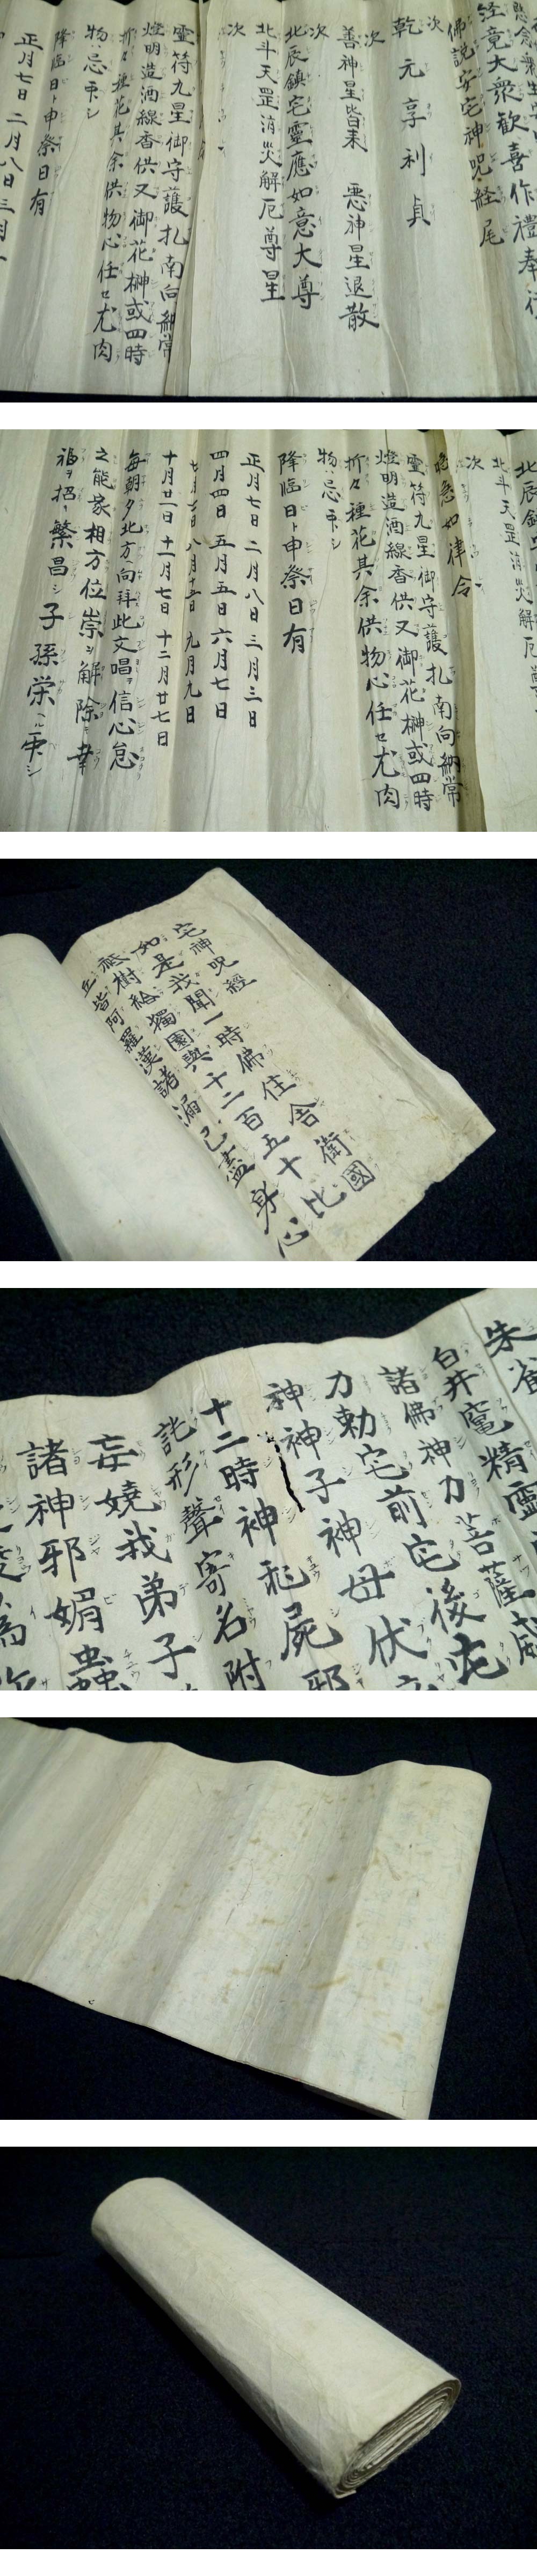 経竟大衆歓喜作禮奉
佛説安宅神呪経尾
次
乾元享利貞
次
善神星皆来 悪神星退散
次
北辰鎮宅靈應如意大尊
北斗天罡消災解厄尊星
次
靈符九星御守護札南向納常
燈明造酒線香供又御花榊或四時
折々種花其余供物心任セ尤肉
物ハ忌可シ
降臨日ト申祭日有
正月七日二月八日三月
北斗天罡消災解厄
次
喼急如律令
靈符九星御守護札南向納常
燈明造酒線香供又御花榊或四時
折々種花其余供物心任セ尤肉
物ハ忌可シ
降臨日ト申祭日有
正月七日 二月八日 三月三日
四月四日 五月五日 六月七日
七月七日 八月十五日 九月九日
十月廿一日 十一月七日 十二月廿七日
毎朝夕北方ヘ向拜此文唱ヲ信心怠
之能家相方位崇ヲ解除シ幸
福ヲ招キ繁昌シ子孫栄ヘル可シ
宅神呪經
如是我聞一時佛住舎衛國
祇樹給獨園與十二百五十比
丘皆阿羅漢諸漏已盡身心
朱雀
白井竃精靈
諸佛神力菩薩威
力勅宅前宅後宅
神神子神母伏
十二時神起屍邪
詫形聲寄名附
妄嬈我弟子
諸神邪媚蟲